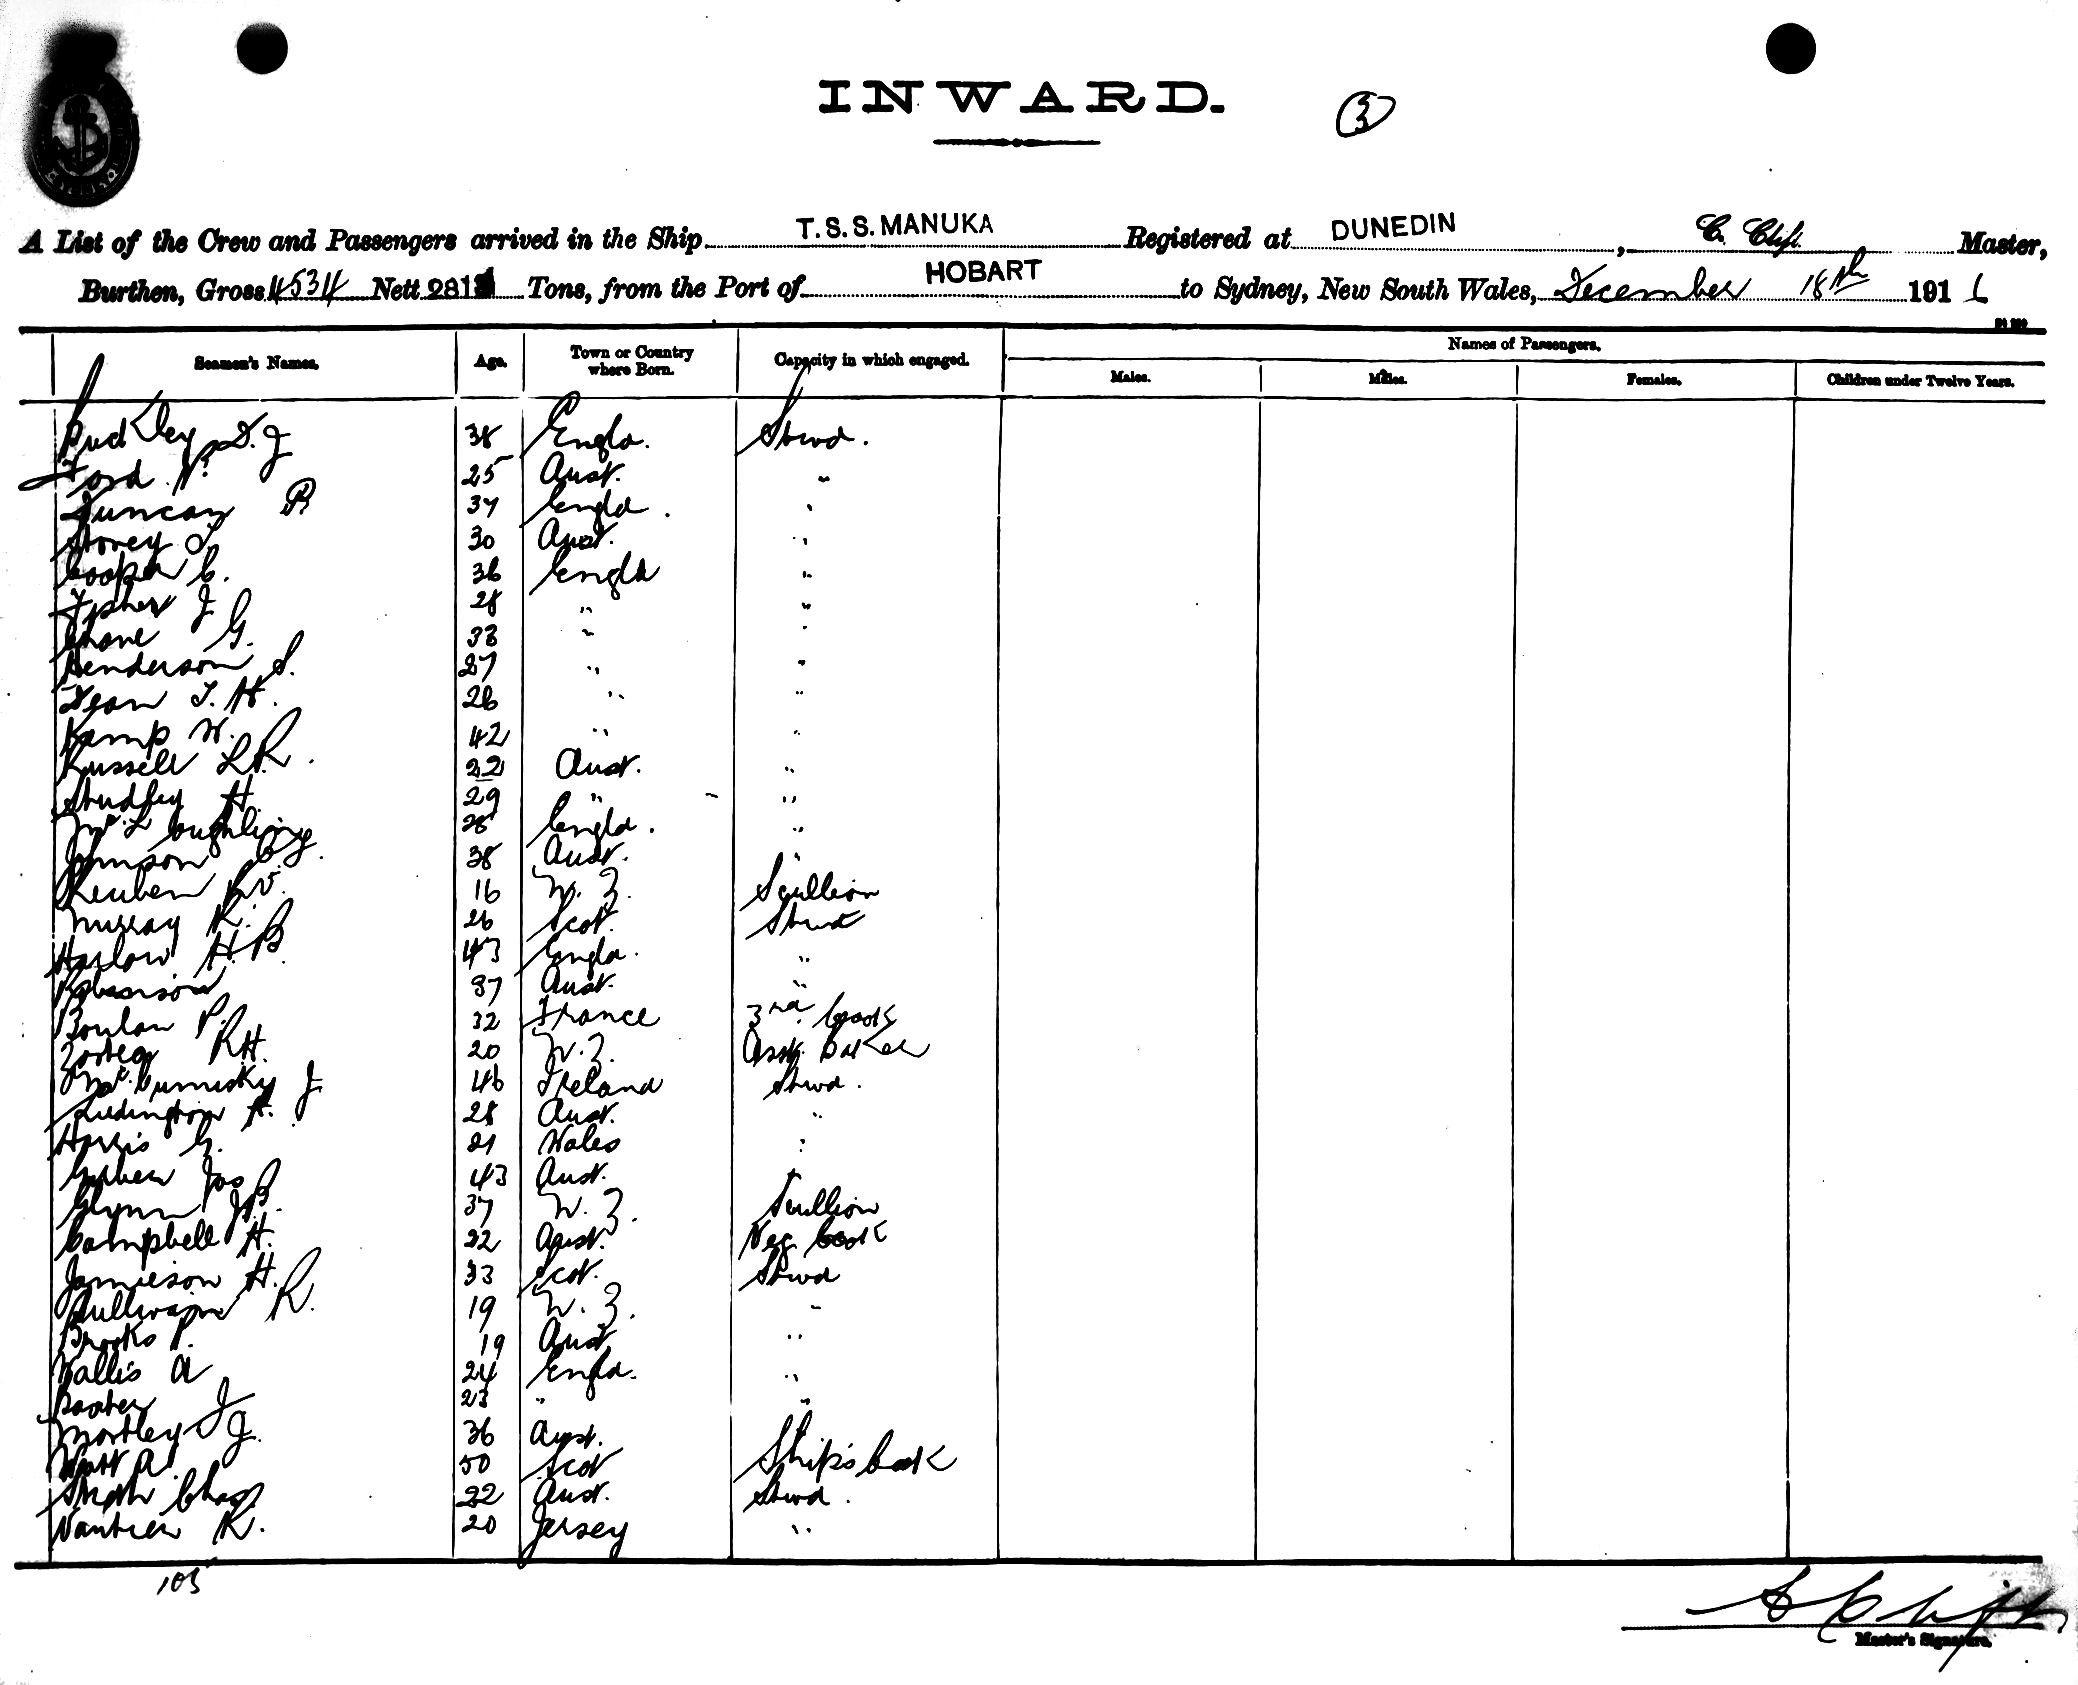 INWARD.
3
A List of the Crew and Passengers arrived in the Ship T.S.S. MANUKA Registered at DUNEDIN, C. Clift Master,
Burthen, Gross 4534 Nett 281 Tons, from the Port of HOBART to Sydney, New South Wales, December 18th 1916
Seamen's Names. Age. Town or Country where Born. Capacity in which engaged. Names of Passengers.
Males. Males. Females. Children under Twelve Years.
Buckley D. J 38 Engld. Stwd.
Ford 25 Aust. "
Duncan P 37 Engld. "
Storey J 30 Aust. "
Cooper C. 36 Engld "
Fisher J 28 " "
Crane G. 33 " "
Henderson S. 27 " "
Dean T. H. 26 " "
Kamp W. 42 " "
Russell L R. 22 Aust. "
Studley H. 29 " "
McLoughlin J 28 Engld. "
Johnson C 38 Aust. "
Reuben R V. 16 N. Z. Scullion
Murray K. 26 Scot. Stwd
Harlow H. B. 43 Engld. "
Robinson 37 Aust. "
Boulan P. 32 France 3rd Cook
R H. 20 N. Z. Asst. Baker
J 46 Ireland Stwd.
Ludington A. 28 Aust. "
Harris G. 21 Wales "
Jos 43 Aust. "
Glynn J B. 37 N. Z. Scullion
Campbell H. 22 Aust. Veg. Cook
Jamieson H. 33 Scot. Stwd
R. 19 N. Z. "
Brooks P. 19 Aust "
Wallis A 24 Engld. "
Baxter J 23 " "
Mortley J. 36 Aust. "
Watt A. 50 Scot Ship's Cook
Smith Chas. 22 Aust. Stwd.
Vautier K. 20 Jersey "
105
C Clift
Master's Signature.